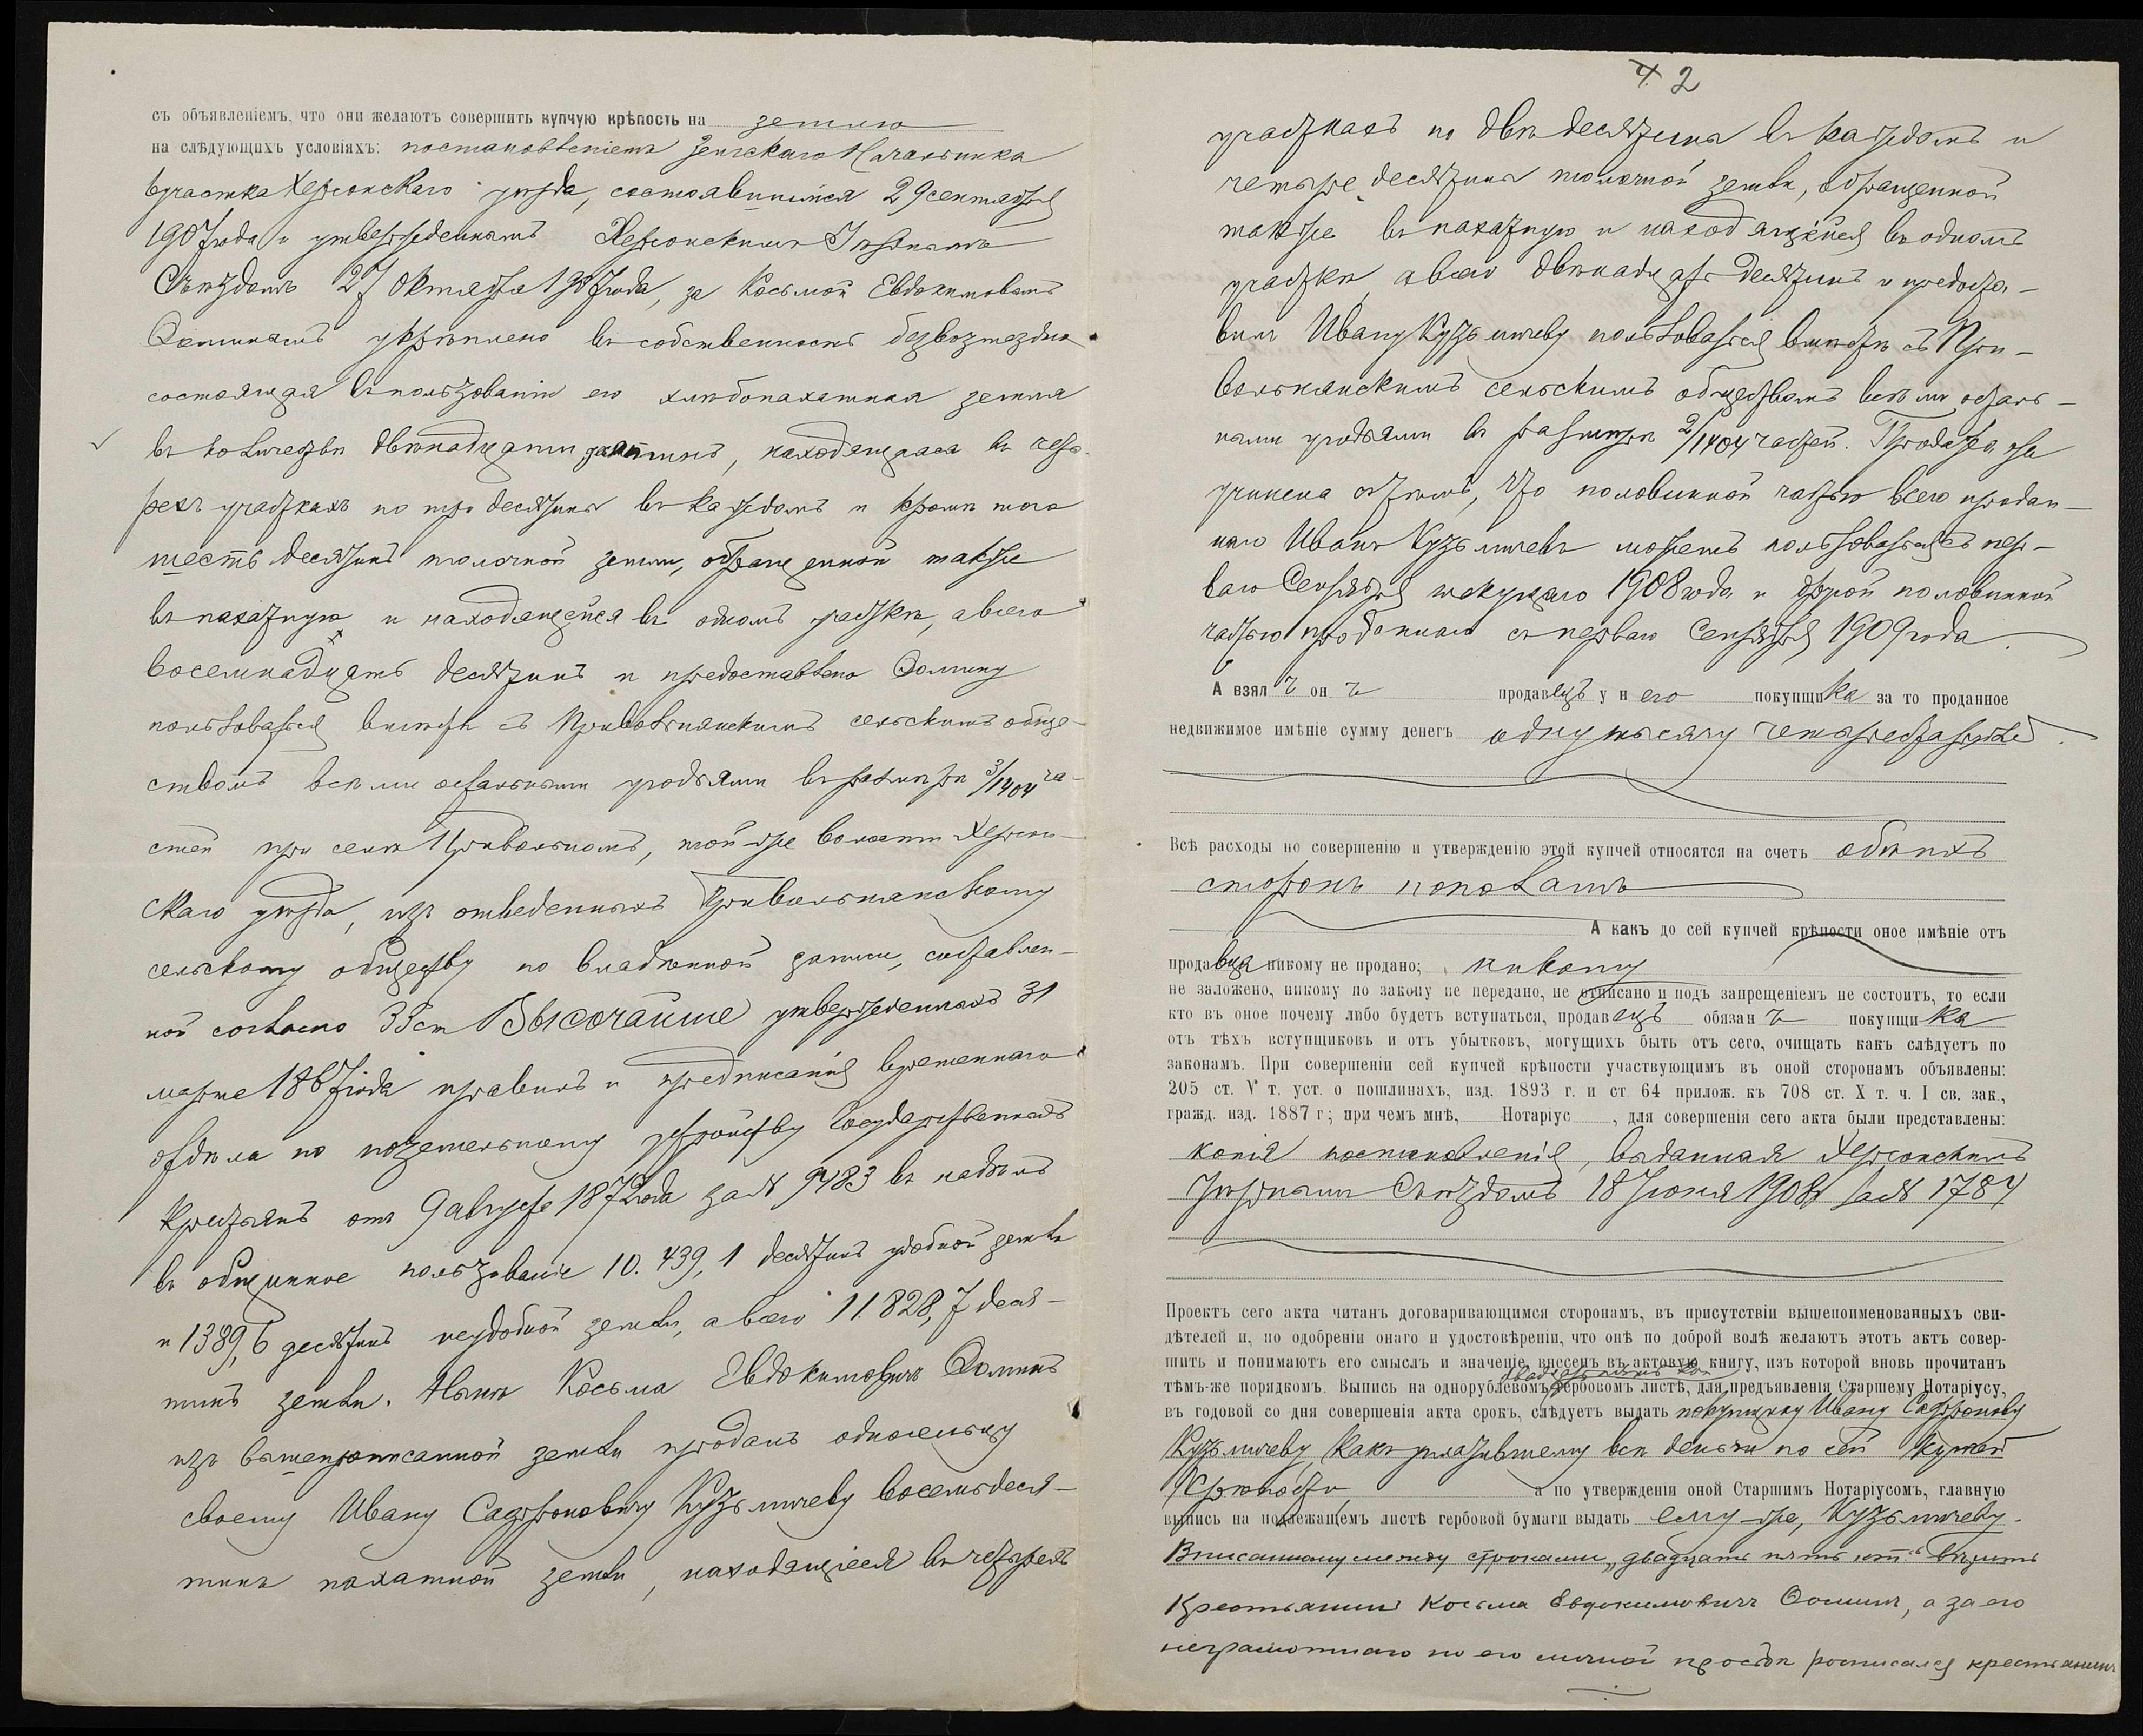 съ объявленіемъ, что они желаютъ совершить купчую крѣпость на землю
на слѣдующихъ условіяхъ: постановленіемъ Земскаго Начальника
участка Херсонскаго уѣзда, состоявшимся 29 сентября
1907 года и утвержденнымъ Херсонскимъ Уѣзднымъ
Съѣздомъ 27 Октября 1907 года, за Косьмой Евдокимовымъ
Ѳоминымъ укрѣплено въ собственность безвозмездно
состоящая въ пользованіи его хлѣбопахатная земля
въ количествѣ двѣнадцати десятинъ, находящаяся въ четы-
рехъ участкахъ по три десятины въ каждомъ и кромѣ того
шесть десятинъ толочной земли, обращенной также
въ пахатную и находящейся въ одномъ участкѣ, а всего
восемнадцать десятинъ и предоставлено Ѳомину
пользоваться вмѣстѣ съ Привольнянскимъ сельскимъ обще-
ствомъ всѣми остальными угодьями въ размѣрѣ 3/1404 ча-
стей при селѣ Привольномъ, той-же волости Херсон-
скаго уѣзда, изъ отведенныхъ Привольнянскому
сельскому обществу по владѣнной записи, составлен-
ной согласно 33 ст Высочайше утвержденныхъ 31
марта 1867 года правилъ и предписанія временнаго
отдѣла по поземельному устройству Государственныхъ
Крестьянъ отъ 9 августа 1872 года за № 9483 въ надѣлъ
въ общинное пользованіе 10.439,1 десятинъ удобной земли
и 1389,6 десятинъ неудобной земли, а всего 11.828,7 деся-
тинъ земли. Нынѣ Косьма Евдокимовичъ Ѳоминъ
изъ вышеописанной земли продалъ односельцу
своему Ивану Сафроновичу Кузьмичеву восемь деся-
тинъ пахатной земли, находящіеся въ четырехъ
2
участкахъ по двѣ десятины въ каждомъ и
четыре десятины толочной земли, обращенной
также въ пахатную и находящейся въ одномъ
участкѣ, а всего двѣнадцать десятинъ и предоста-
вилъ Ивану Кузьмичеву пользоваться вмѣстѣ съ При-
вольнянскимъ сельскимъ обществомъ всѣми осталь-
ными угодьями въ размѣрѣ 2/1404 частей. Продажа эта
учинена съ тѣмъ, что половинной частью всего продан-
наго Иванъ Кузьмичевъ можетъ пользоваться съ пер-
ваго Сентября текущаго 1908 года и другой половинной
частью проданнаго съ перваго Сентября 1909 года.
А взялъ онъ продавецъ у него покупщика за то проданное
недвижимое имѣніе сумму денегъ одну тысячу четыреста рублей.
Всѣ расходы по совершенію и утвержденію этой купчей относятся на счетъ обѣихъ
сторонъ пополамъ
А какъ до сей купчей крѣпости оное имѣніе отъ
продавца никому не продано; никому
не заложено, никому по закону не передано, не отписано и подъ запрещеніемъ не состоитъ, то если
кто въ оное почему либо будетъ вступаться, продавецъ обязанъ покупщика
отъ тѣхъ вступщиковъ и отъ убытковъ, могущихъ быть отъ сего, очищать какъ слѣдуетъ по
законамъ. При совершеніи сей купчей крѣпости участвующимъ въ оной сторонамъ объявлены:
205 ст. V т. уст. о пошлинахъ, изд. 1893 г. и ст 64 прилож. къ 708 ст. X т. ч. I св. зак.,
гражд. изд. 1887 г; при чемъ мнѣ, Нотаріус , для совершенія сего акта были представлены:
копія постановленія, выданная Херсонскимъ
Уѣзднымъ Съѣздомъ 18 Іюня 1908 г за № 1784
Проектъ сего акта читанъ договаривающимся сторонамъ, въ присутствіи вышепоименованныхъ сви-
дѣтелей и, по одобреніи онаго и удостовѣреніи, что онѣ по доброй волѣ желаютъ этотъ актъ совер-
шить и понимаютъ его смыслъ и значеніе, внесенъ въ актовую книгу, изъ которой вновь прочитанъ
двадцать пять коп
тѣмъ-же порядкомъ. Выпись на однорублевомъ гербовомъ листѣ, для предъявленія Старшему Нотаріусу,
въ годовой со дня совершенія акта срокъ, слѣдуетъ выдать покупщику Ивану Сафронову
Кузьмичеву, какъ уплатившему всѣ деньги по сей купчей
Крѣпости, а по утвержденіи оной Старшимъ Нотаріусомъ, главную
выпись на подлежащемъ листѣ гербовой бумаги выдать ему-же, Кузьмичеву.
Вписанному между строками „двадцать пять коп" вѣрить
Крестьянинъ Косьма Евдокимовичъ Ѳоминъ, а за его
неграмотнаго по его личной просьбѣ росписался крестьянинъ